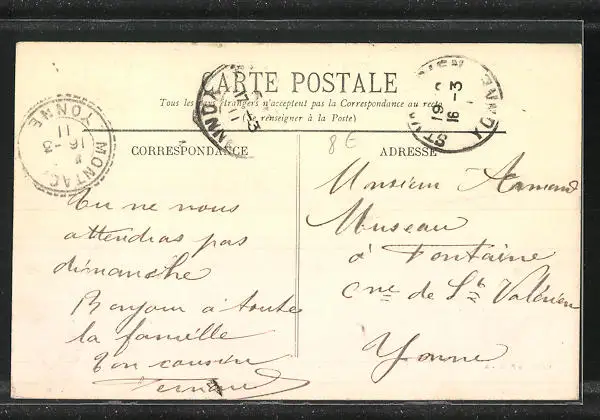 CARTE POSTALE
Tous les pays étrangers n'acceptent pas la Correspondance au recto
(Se renseigner à la Poste)
CORRESPONDANCE
ADRESSE
8 €
MONTAC
YONNE
16 - 3
11
YONNE
17 - 3
11
YONNE
18
16 - 3
Tu ne nous
attendras pas
dimanche
Bonjour à toute
la famille
Ton cousin
Fernand
Monsieur Armand
Museau
à Fontaine
cne de St Valérien
Yonne